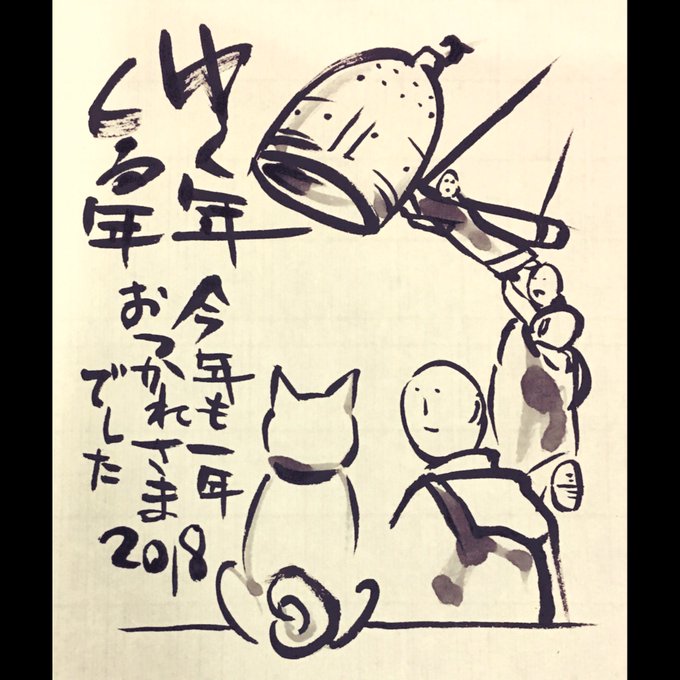 ゆく年
くる年
今年も一年
おつかれさま
でした
2018